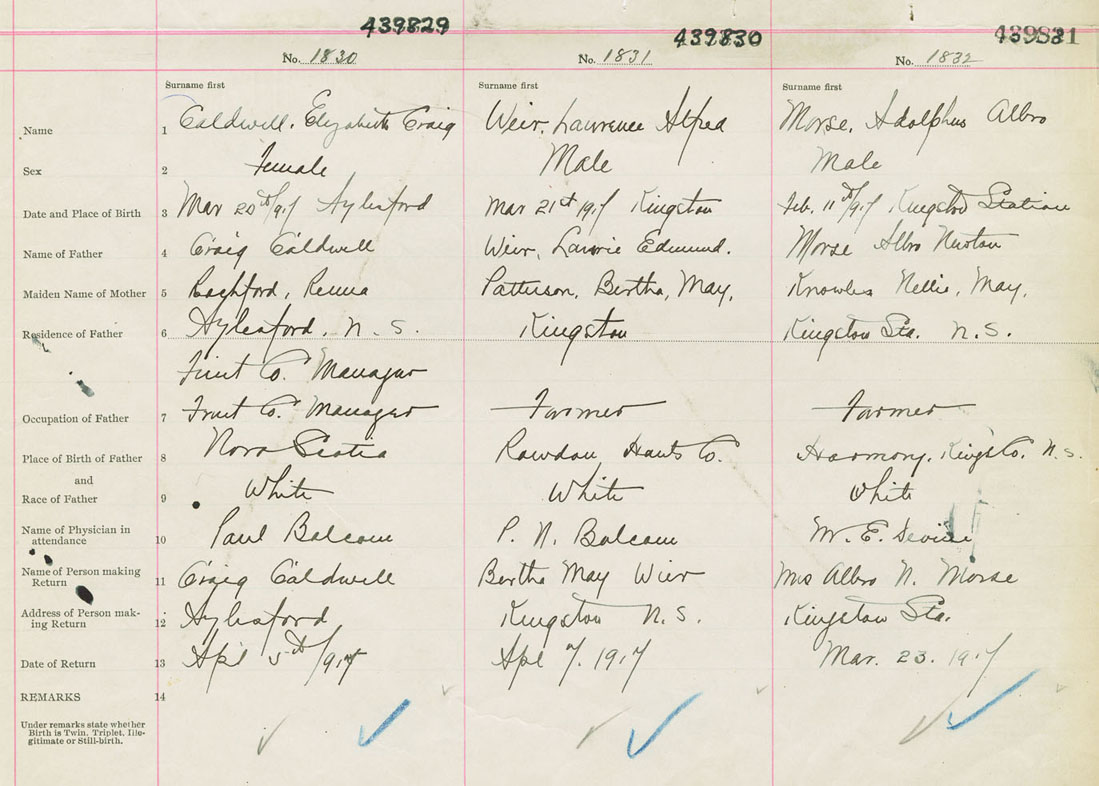 439829 439830 439831
No. 1830 No. 1831 No. 1832
Surname first Surname first Surname first
Name 1 Caldwell, Elizabeth Craig Weir, Lawrence Alfred Morse, Adolphus Albro
Sex 2 Female Male Male
Date and Place of Birth 3 Mar 20th/917 Aylesford Mar 21st 1917 Kingston Feb. 11th/917 Kingston Station
Name of Father 4 Craig Caldwell Weir, Laurie Edmund. Morse Albro Newton
Maiden Name of Mother 5 Patterson, Bertha, May, Knowles Nellie, May,
Residence of Father 6 Aylesford, N.S. Kingston Kingston Sta. N.S.
Fruit Co. Manager
Occupation of Father 7 Fruit Co. Manager Farmer Farmer
Place of Birth of Father 8 Nova Scotia Rawdon Hants Co. Harmony, Kings Co. N.S.
and
Race of Father 9 White White White
Name of Physician in
attendance 10 Paul Balcom P. N. Balcom W. E.
Name of Person making
Return 11 Craig Caldwell Bertha May Weir Mrs Albro N. Morse
Address of Person mak-
ing Return 12 Aylesford Kingston N.S. Kingston Sta.
Date of Return 13 Apl 5th/917 Apl 7. 1917 Mar. 23. 1917
REMARKS 14
Under remarks state whether
Birth is Twin, Triplet, Ille-
gitimate or Still-birth.